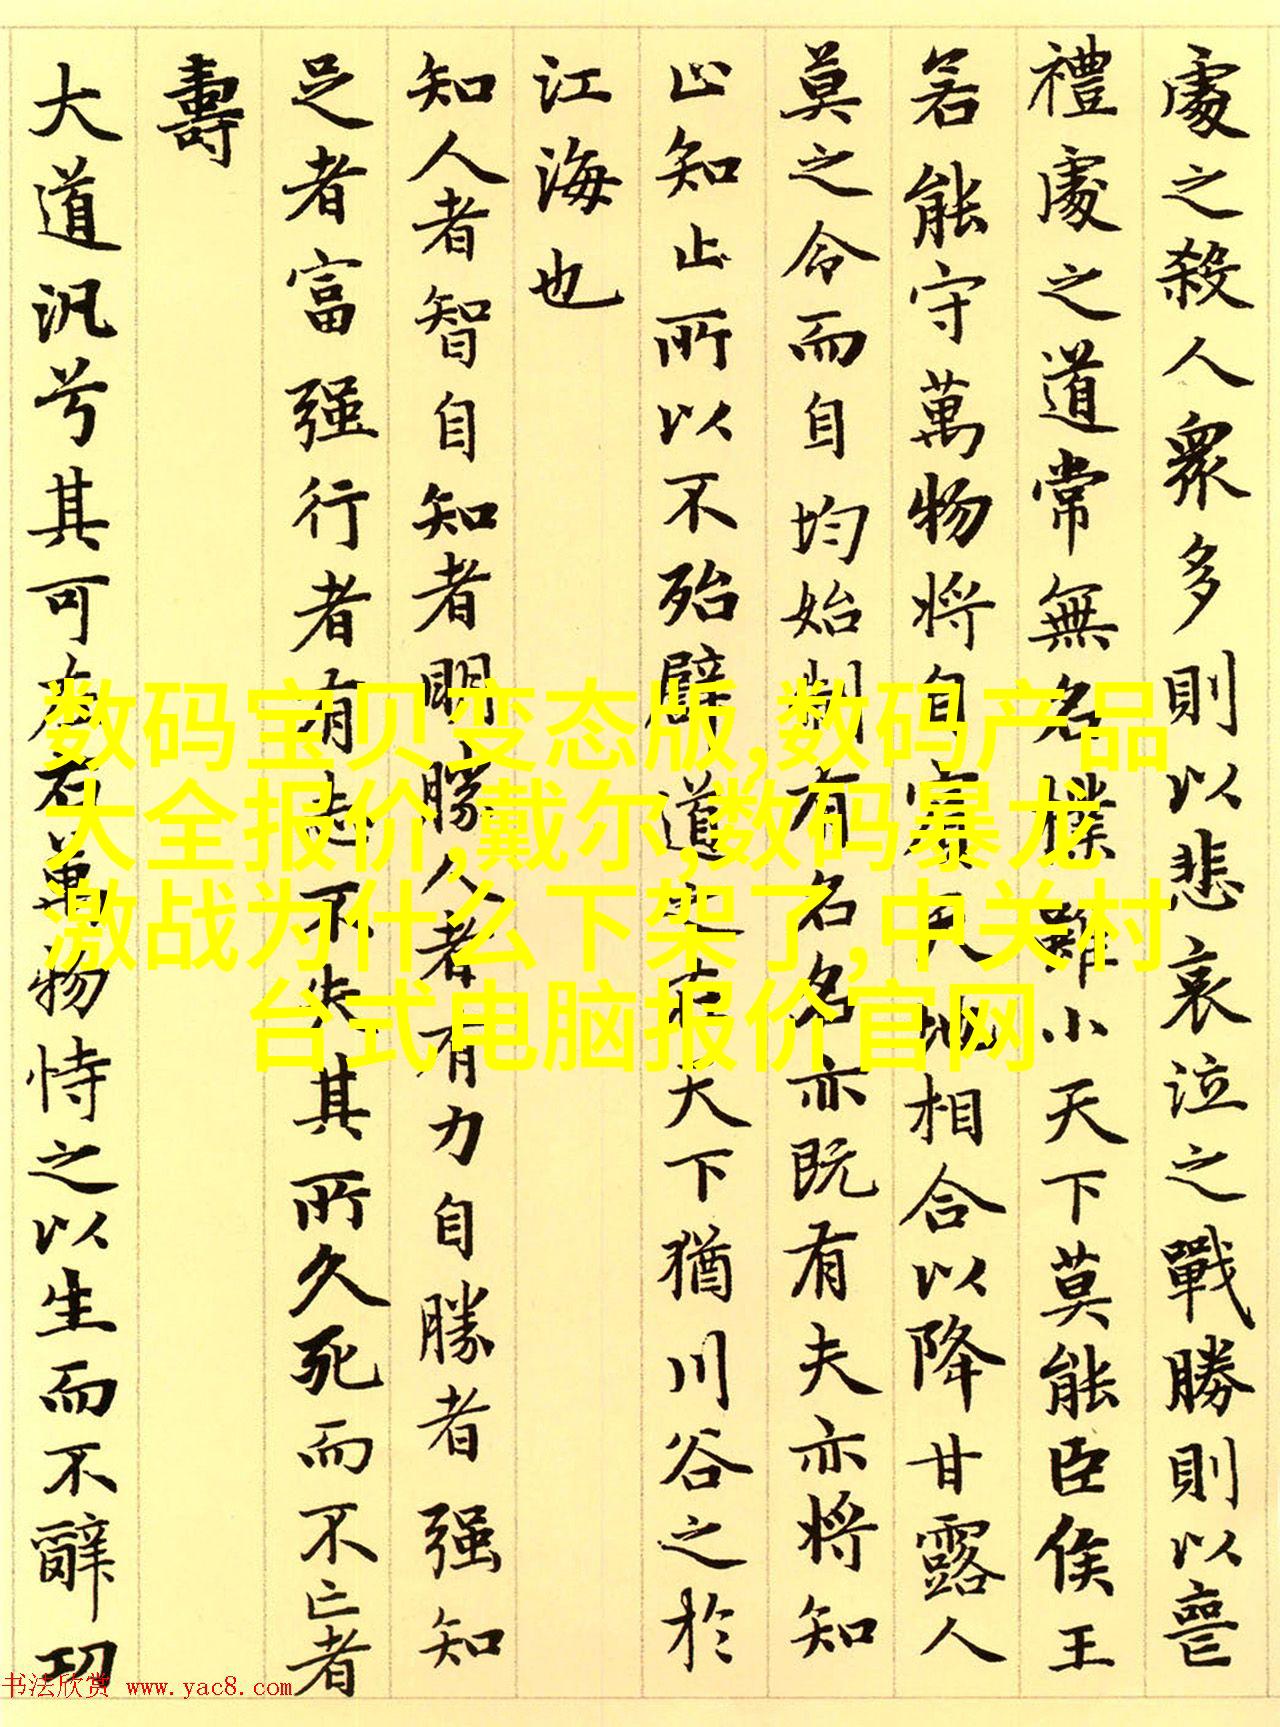 處之殺人衆多則以悲哀泣之戰勝則以喪
禮處之道常無名樸雖小天下莫能臣侯王
若能守萬物將自賓天地相合以降甘露人
莫之令而自均始制有名名亦既有夫亦將知
止知止所以不殆譬道之在天下猶川谷之於
江海也
知人者智自知者明勝人者有力自勝者强知
足者富强行者有志不失其所久死而不亡者
壽
大道汎兮其可左右萬物恃之以生而不辭功
数码宝贝变态版,数码产品
大全报价,戴尔,数码暴龙
激战为什么下架了,中关村
台式电脑报价官网
书法欣赏 www.yac8.com